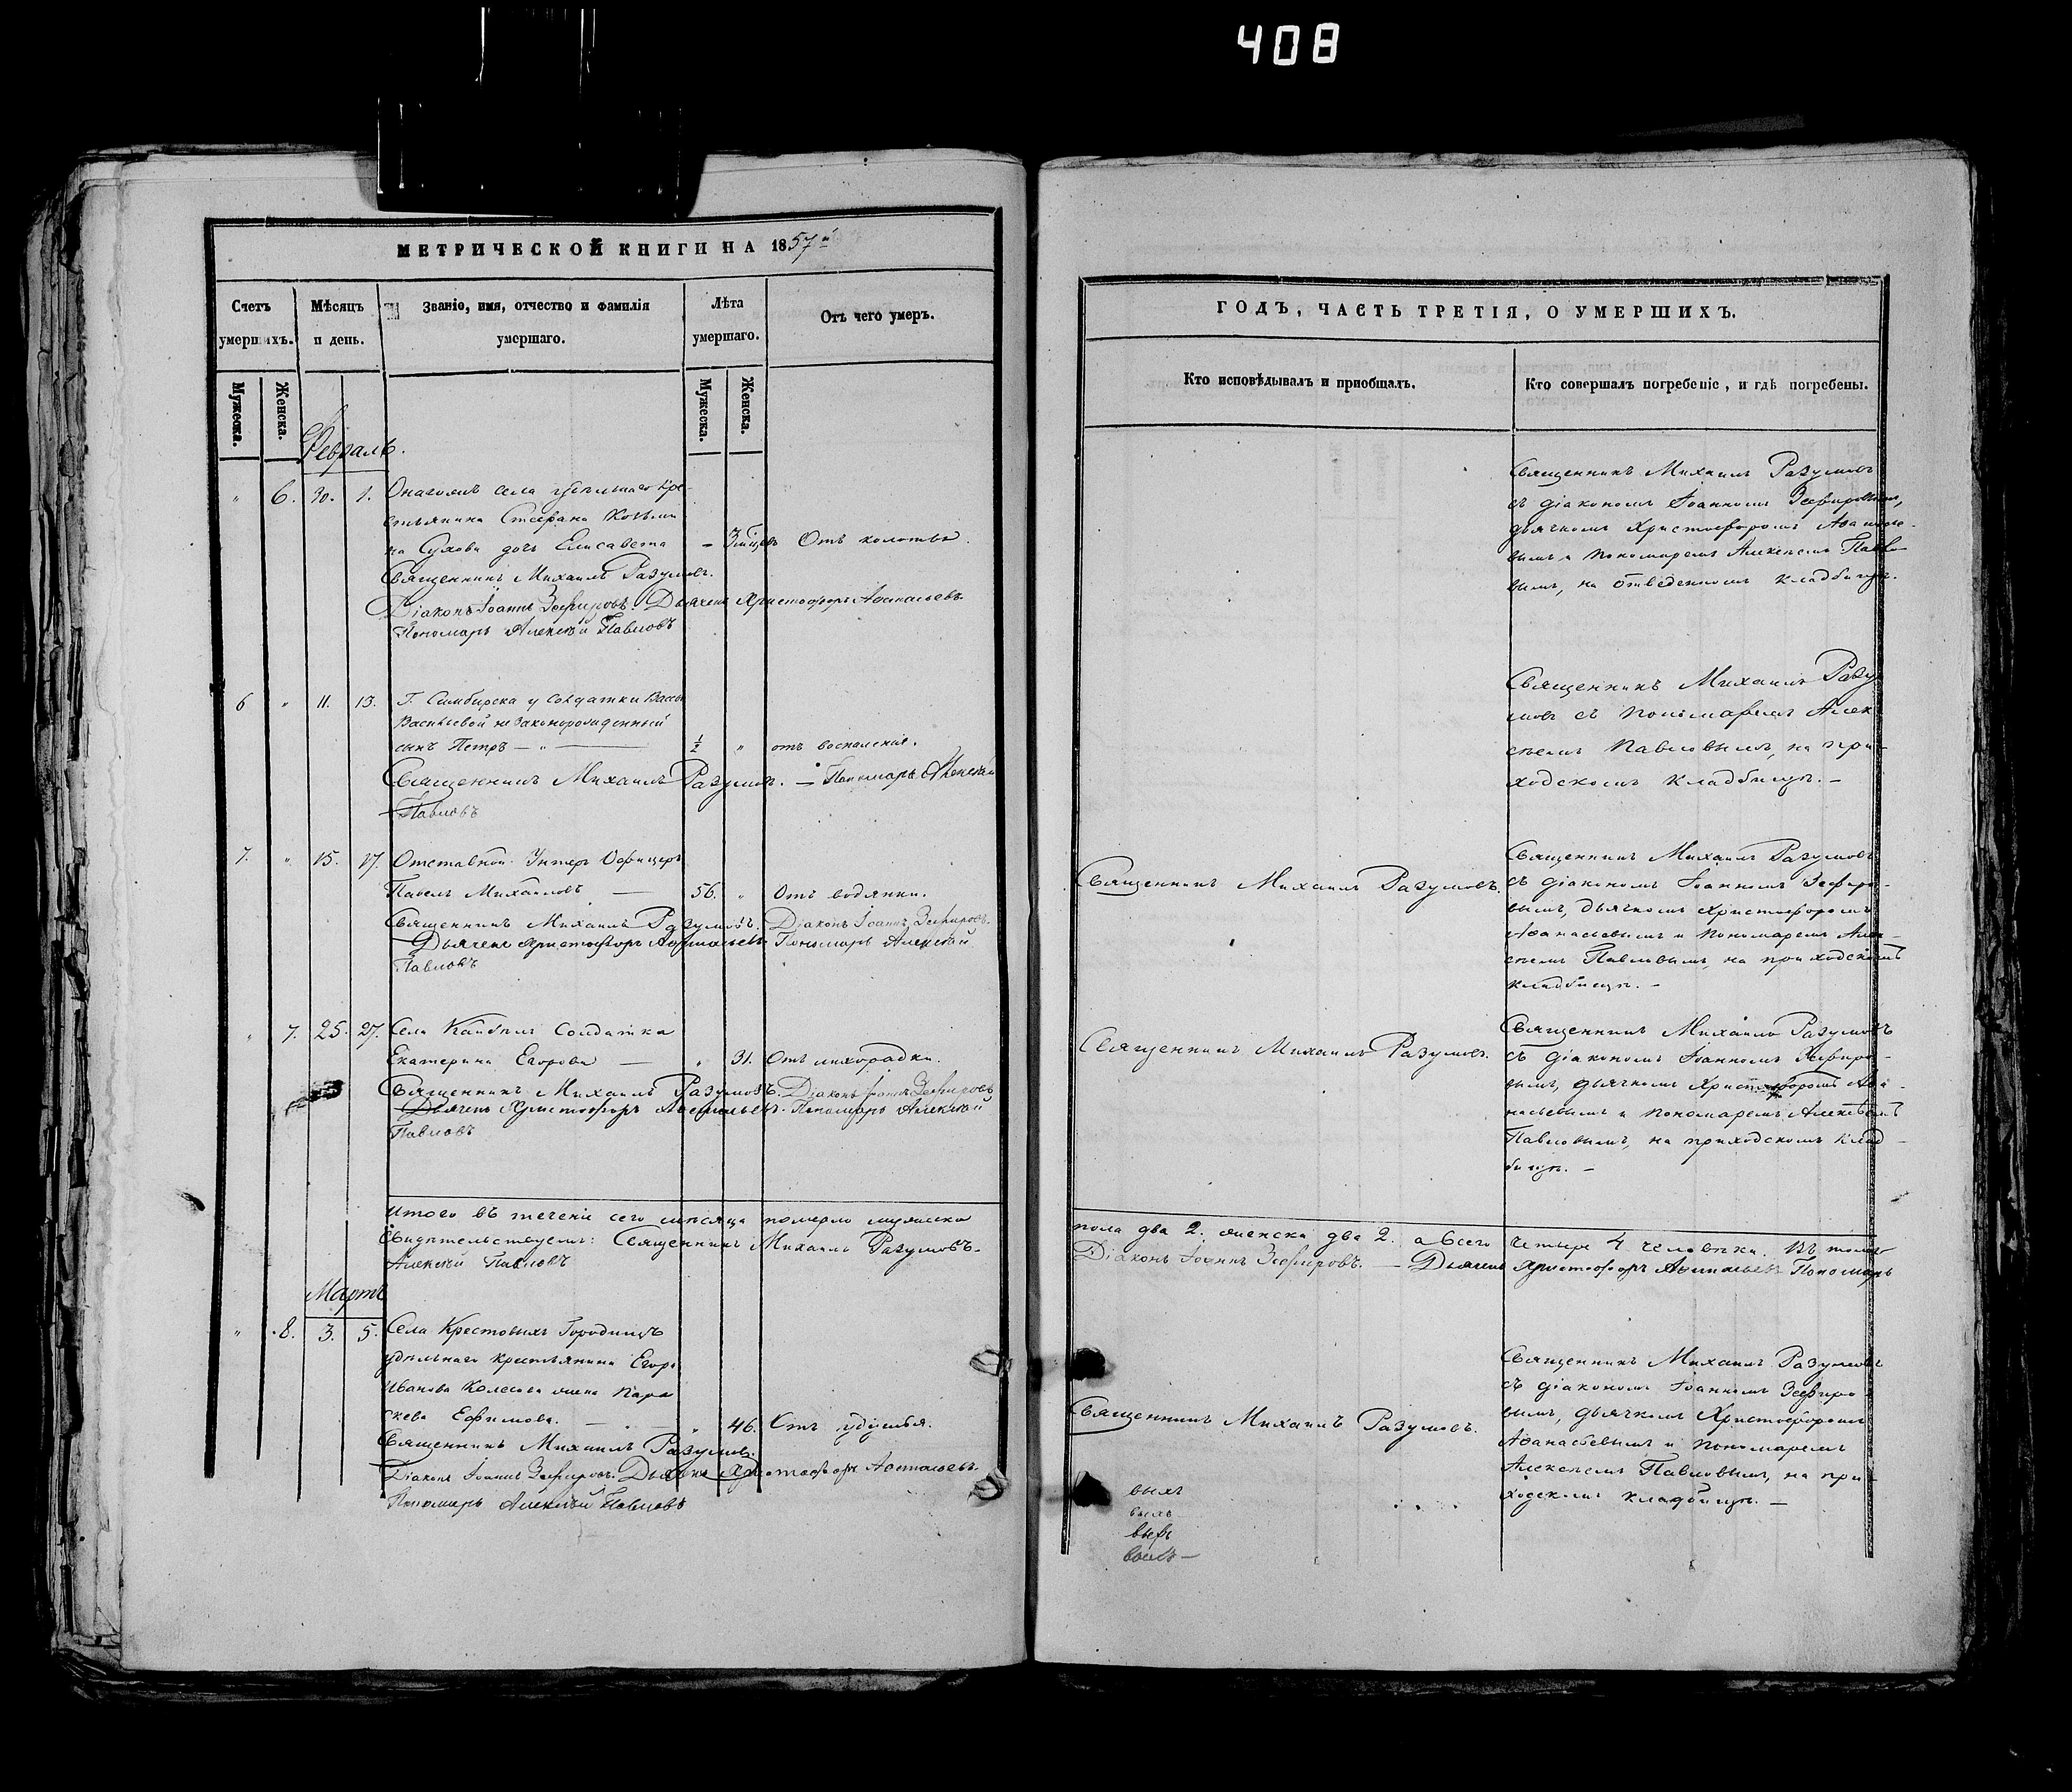 408
МЕТРИЧЕСКОЙ КНИГИ НА 1857й
Счетъ умершихъ.
Мѣсяцъ и день.
Званіе, имя, отчество и фамилія умершаго.
Лѣта умершаго.
Отъ чего умеръ.
Мужеска.
Женска.
Мужеска.
Женска.
Февраль.
" 6. 30. 1. Онагожъ села удѣльнаго кре-
стьянина Стефана Козьми
на Сухова дочь Елисавета – Отъ колотья.
Священникъ Михаилъ Разумовъ.
Діаконъ Іоаннъ Зефировъ. Дьячекъ Христофоръ Афанасьевъ
Пономарь Алексѣй Павловъ
6 " 11. 13. Г. Симбирска у Солдатки
Васильевой незаконорожденный
сынъ Петръ – " – 1/2 " отъ воспаленія.
Священникъ Михаилъ Разумовъ. – Пономарь Алексѣй
Павловъ
7. " 15. 17. Отставной Унтеръ Офицеръ
Павелъ Михайловъ – 56. " Отъ водянки.
Священникъ Михаилъ Разумовъ. Діаконъ Іоаннъ Зефировъ.
Дьячекъ Христофоръ Афанасьевъ Пономарь Алексѣй
Павловъ
" 7. 25. 27. Села Солдатка
Екатерина Егорова – " 31. Отъ лихорадки.
Священникъ Михаилъ Разумовъ. Діаконъ Іоаннъ Зефировъ
Дьячекъ Христофоръ Афанасьевъ. Пономарь Алексѣй
Павловъ
Итого въ теченіе сего мѣсяца померло мужеска
Свидѣтельствуемъ: Священникъ Михаилъ Разумовъ.
Алексѣй Павловъ
Мартъ
" 8. 3. 5. Села Крестовыхъ Городищъ
удѣльнаго крестьянина Егора
Иванова Колесова жена Пара
скева Ефимова. – " 46. Отъ удушья.
Священникъ Михаилъ Разумовъ.
Діаконъ Іоаннъ Зефировъ. Дьячекъ Христофоръ Афанасьевъ.
Пономарь Алексѣй Павловъ
ГОДЪ, ЧАСТЬ ТРЕТІЯ, О УМЕРШИХЪ.
Кто исповѣдывалъ и пріобщалъ.
Кто совершалъ погребеніе, и гдѣ погребены.
Священникъ Михаилъ Разумовъ
съ діакономъ Іоанномъ Зефировымъ,
дьячкомъ Христофоромъ Афанасье-
вымъ и пономаремъ Алексѣемъ Павло-
вымъ, на отведенномъ кладбищѣ.
Священникъ Михаилъ Разу
мовъ съ пономаремъ Алек
сѣемъ Павловымъ, на при-
ходскомъ кладбищѣ. –
Священникъ Михаилъ Разумовъ.
Священникъ Михаилъ Разумовъ
съ діакономъ Іоанномъ Зефиро-
вымъ, дьячкомъ Христофоромъ
Афанасьевымъ и пономаремъ Алек-
сѣемъ Павловымъ, на приходскомъ
кладбищѣ. –
Священникъ Михаилъ Разумовъ.
Священникъ Михаилъ Разумовъ
съ діакономъ Іоанномъ Зефиро-
вымъ, дьячкомъ Христофоромъ Афа-
насьевымъ и пономаремъ Алексѣемъ
Павловымъ, на приходскомъ клад-
бищѣ. –
пола два 2. женска два 2. а всего четыре 4 человѣка. Въ томъ
Діаконъ Іоаннъ Зефировъ. – Дьячекъ Христофоръ Афанасьевъ Пономарь
Священникъ Михаилъ Разумовъ.
Священникъ Михаилъ Разумовъ
съ діакономъ Іоанномъ Зефиро-
вымъ, дьячкомъ Христофоромъ
Афанасьевымъ и пономаремъ
Алексѣемъ Павловымъ, на при-
ходскомъ кладбищѣ. –